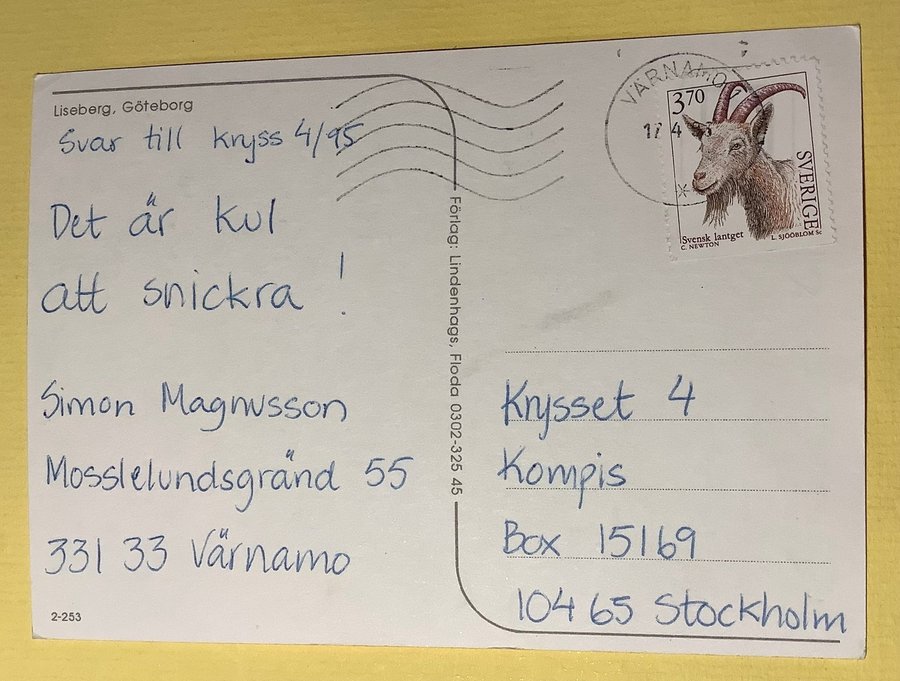 Liseberg, Göteborg
Svar till kryss 4/95
Det är kul
att snickra!
Simon Magnusson
Mosslelundsgränd 55
331 33 Värnamo
2-253
Förlag: Lindenhags, Floda 0302-325 45
VÄRNAMO
17 4
3 70
SVERIGE
Svensk lantget
C. NEWTON
L. SJÖÖBLOM Sc
Krysset 4
Kompis
Box 15169
104 65 Stockholm